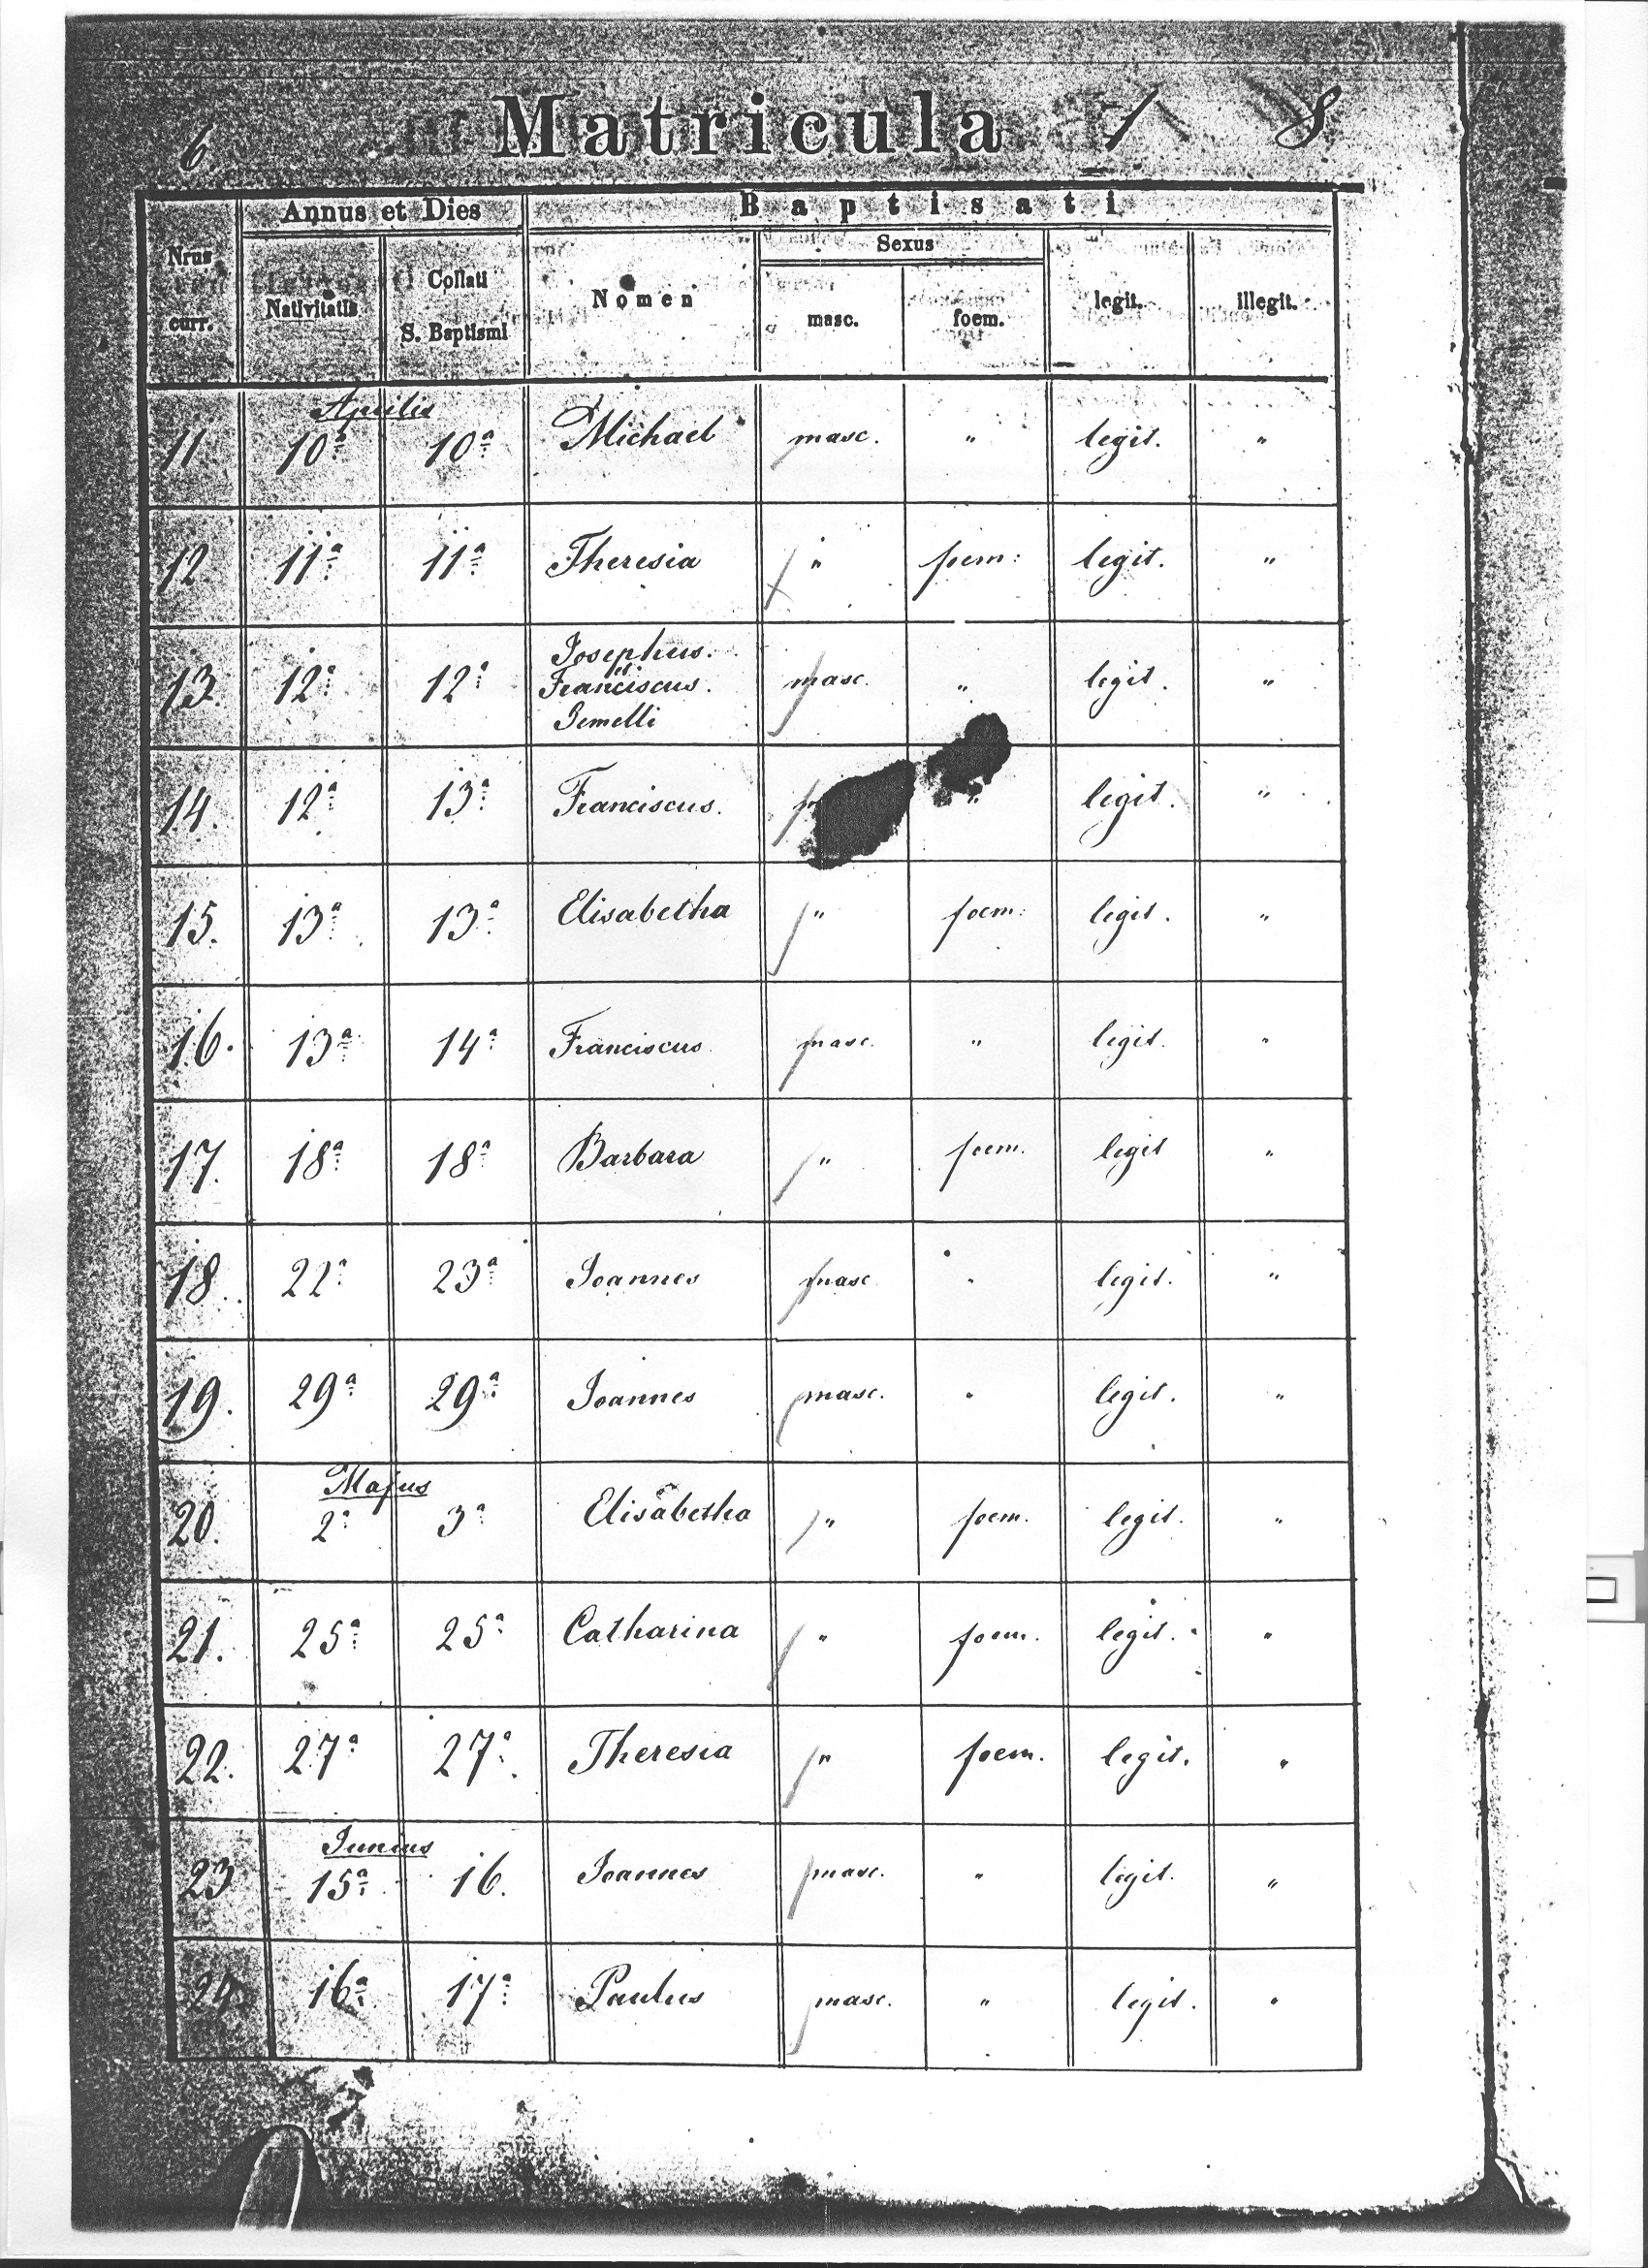 6 Matricula 1 8
Annus et Dies Baptisati
Nrus curr. Nativitatis Collati S. Baptismi Nomen Sexus legit. illegit.
masc. foem.
Aprilis
11 10ª 10ª Michael masc. " legit. "
12 11ª 11ª Theresia " foem: legit. "
13. 12ª 12ª Josephus. et Franciscus. Gemelli masc. " legit. "
14. 12ª 13ª Franciscus. " legit. "
15. 13ª 13ª Elisabetha " foem: legit. "
16. 13ª 14ª Franciscus masc. " legit. "
17. 18ª 18ª Barbara " foem. legit "
18 22ª 23ª Joannes masc " legit. "
19. 29ª 29ª Joannes masc. " legit. "
Majus
20. 2ª 3ª Elisabetha " foem. legit. "
21. 25ª 25ª Catharina " foem. legit. "
22. 27ª 27ª Theresia " foem. legit. "
Junius
23 15ª 16. Joannes masc. " legit. "
24. 16ª 17ª Paulus masc. " legit. "